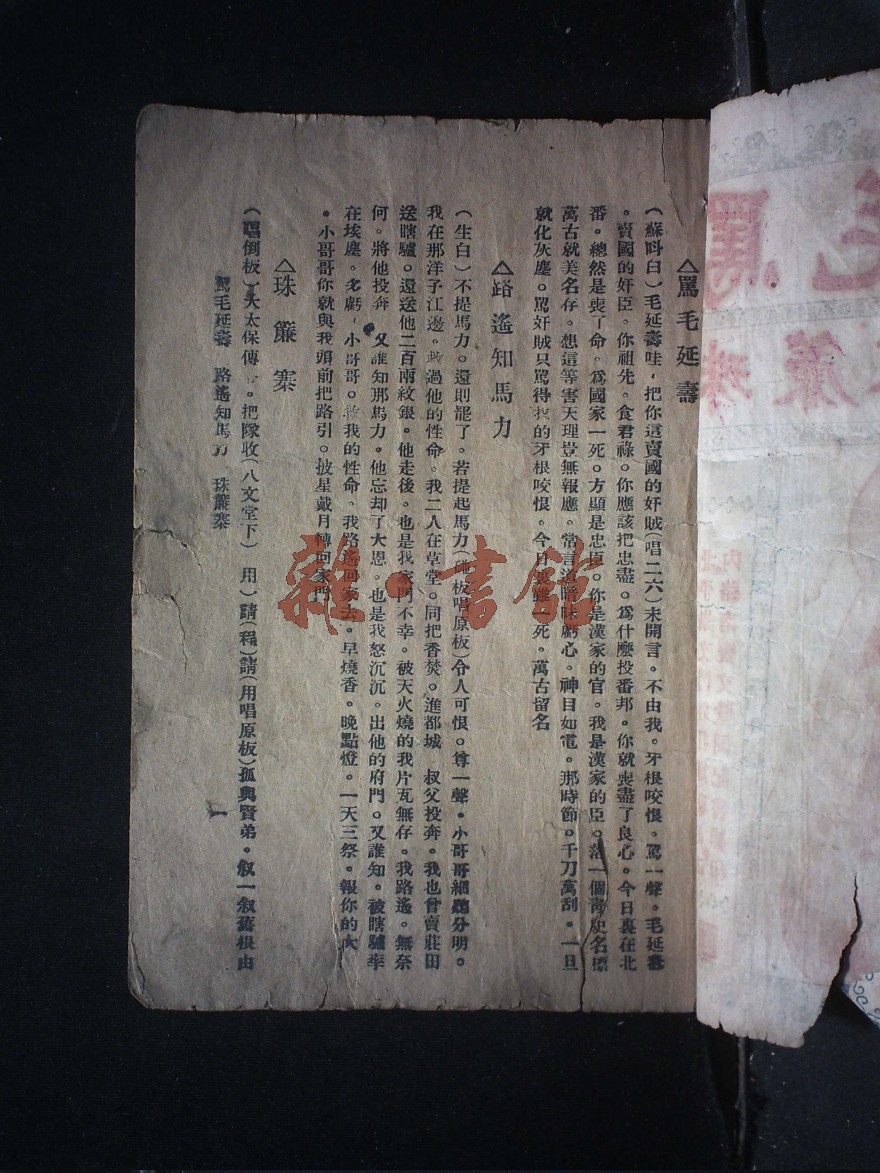 △罵毛延壽
（蘇呌白）毛延壽哇，把你這賣國的奸賊（唱二六）未開言。不由我。牙根咬恨。罵一聲。毛延壽
。賣國的奸臣。你祖先。食君祿。你應該把忠盡。爲什麼投番邦。你就喪盡了良心。今日裏在北
番。總然是喪了命。爲國家一死。方顯是忠臣。你是漢家的官。我是漢家的臣。落一個靑史名標
萬古就美名存。想這等害天理豈無報應。常言道暗昧虧心。神目如電。那時節。千刀萬刮。一旦
就化灰塵。罵奸賊只罵得我的牙根咬恨。今日裏雖一死。萬古留名
△路遙知馬力
（生白）不提馬力。還則罷了。若提起馬力（唱原板）令人可恨。尊一聲。小哥哥細聽分明。
我在那洋子江邊。救過他的性命。我二人在草堂。同把香焚。進都城 叔父投奔。我也曾賣莊田
送瞎驢。還送他二百兩紋銀。他走後。也是我家門不幸。被天火燒的我片瓦無存。我路遙。無奈
何。將他投奔 又誰知那馬力。他忘却了大恩。也是我怒沉沉。出他的府門。又誰知。被瞎驢率
在埃塵。多虧。小哥哥。救我的性命。我路遙回家去。早燒香。晚點燈。一天三祭。報你的大
。小哥哥你就與我頭前把路引。披星戴月轉回家門
△珠簾寨
（唱倒板）大太保傳 。把隊收（八文堂下） 用）請（程）請（用唱原板）孤與賢弟。叙一叙舊根由
罵毛延壽 路遙知馬力 珠簾寨
一
罵
珠
簾
雜·書館